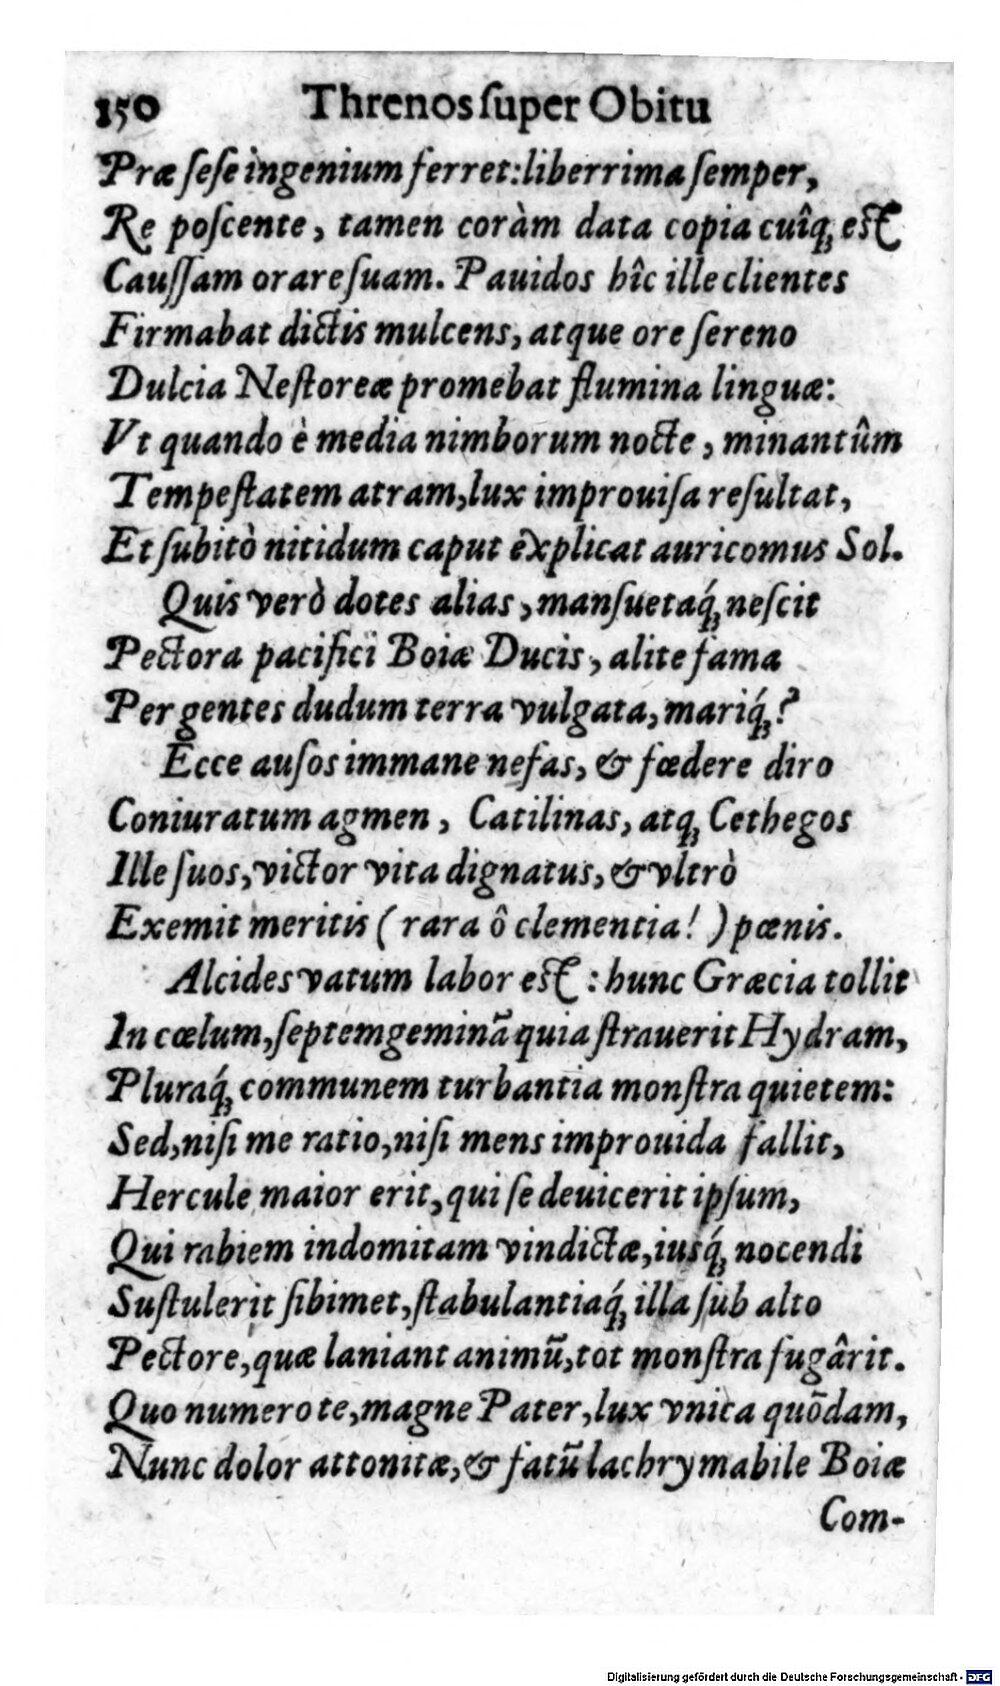 150 Threnos ſuper Obitu
Præ ſeſe ingenium ferret: liberrima ſemper,
Re poſcente, tamen coràm data copia cuîq; eſt
Cauſſam orare ſuam. Pauidos hîc ille clientes
Firmabat dictis mulcens, atque ore ſereno
Dulcia Neſtoreæ promebat flumina linguæ:
Vt quando è media nimborum nocte, minantûm
Tempeſtatem atram, lux improuiſa reſultat,
Et ſubitò nitidum caput explicat auricomus Sol.
Quis verò dotes alias, manſuetaq́; neſcit
Pectora pacifici Boiæ Ducis, alite fama
Per gentes dudum terra vulgata, mariq́;?
Ecce auſos immane nefas, & fœdere diro
Coniuratum agmen, Catilinas, atq; Cethegos
Ille ſuos, victor vita dignatus, & vltrò
Exemit meritis (rara ô clementia!) pœnis.
Alcides vatum labor eſt: hunc Græcia tollit
In cœlum, ſeptemgeminã quia ſtrauerit Hydram,
Pluraq́; communem turbantia monſtra quietem:
Sed, niſi me ratio, niſi mens improuida fallit,
Hercule maior erit, qui ſe deuicerit ipſum,
Qui rabiem indomitam vindictæ, iusq́; nocendi
Suſtulerit ſibimet, ſtabulantiaq́; illa ſub alto
Pectore, quæ laniant animũ, tot monſtra fugârit.
Quo numero te, magne Pater, lux vnica quõdam,
Nunc dolor attonitæ, & fatũ lachrymabile Boiæ
Com-
Digitalisierung gefördert durch die Deutsche Forschungsgemeinschaft - DFG